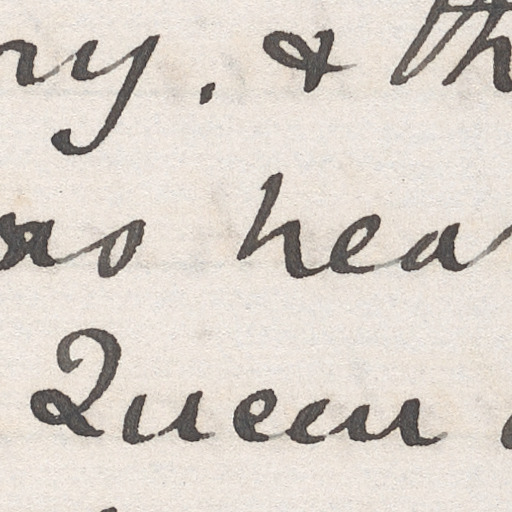 ry. & th
as hea
Queen